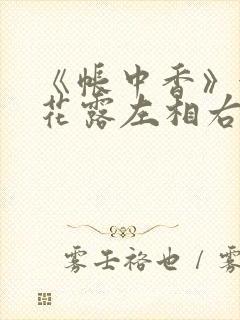 《帐中香》
花露左相右
雾壬裕也 / 雾